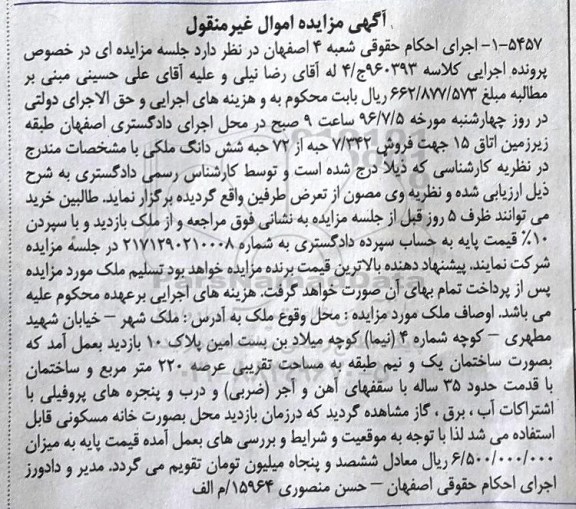 آگهی مزایده اموال غیرمنقول
۵۴۵۷-۱- اجرای احکام حقوقی شعبه ۴ اصفهان در نظر دارد جلسه مزایده ای در خصوص
پرونده اجرایی کلاسه ۹۶۰۳۹۳ج/۴ له آقای رضا نیلی و علیه آقای علی حسینی مبنی بر
مطالبه مبلغ ۶۶۲/۸۷۷/۵۷۳ ریال بابت محکوم به و هزینه های اجرایی و حق الاجرای دولتی
در روز چهارشنبه مورخه ۹۶/۷/۵ ساعت ۹ صبح در محل اجرای دادگستری اصفهان طبقه
زیرزمین اتاق ۱۵ جهت فروش ۷/۳۴۲ حبه از ۷۲ حبه شش دانگ ملکی با مشخصات مندرج
در نظریه کارشناسی که ذیلا درج شده است و توسط کارشناس رسمی دادگستری به شرح
ذیل ارزیابی شده و نظریه وی مصون از تعرض طرفین واقع گردیده برگزار نماید. طالبین خرید
می توانند ظرف ۵ روز قبل از جلسه مزایده به نشانی فوق مراجعه و از ملک بازدید و با سپردن
۱۰٪ قیمت پایه به حساب سپرده دادگستری به شماره ۲۱۷۱۲۹۰۲۱۰۰۰۸ در جلسه مزایده
شرکت نمایند. پیشنهاد دهنده بالاترین قیمت برنده مزایده خواهد بود تسلیم ملک مورد مزایده
پس از پرداخت تمام بهای آن صورت خواهد گرفت. هزینه های اجرایی برعهده محکوم علیه
می باشد. اوصاف ملک مورد مزایده : محل وقوع ملک به آدرس : ملک شهر – خیابان شهید
مطهری – کوچه شماره ۴ (نیما) کوچه میلاد بن بست امین پلاک ۱۰ بازدید بعمل آمد که
بصورت ساختمان یک و نیم طبقه به مساحت تقریبی عرصه ۲۲۰ متر مربع و ساختمان
با قدمت حدود ۳۵ ساله با سقفهای آهن و آجر (ضربی) و درب و پنجره های پروفیلی با
اشتراکات آب ، برق ، گاز مشاهده گردید که درزمان بازدید محل بصورت خانه مسکونی قابل
استفاده می شد لذا با توجه به موقعیت و شرایط و بررسی های بعمل آمده قیمت پایه به میزان
۶/۵۰۰/۰۰۰/۰۰۰ ریال معادل ششصد و پنجاه میلیون تومان تقویم می گردد. مدیر و دادورز
اجرای احکام حقوقی اصفهان – حسن منصوری ۱۵۹۶۴/م الف